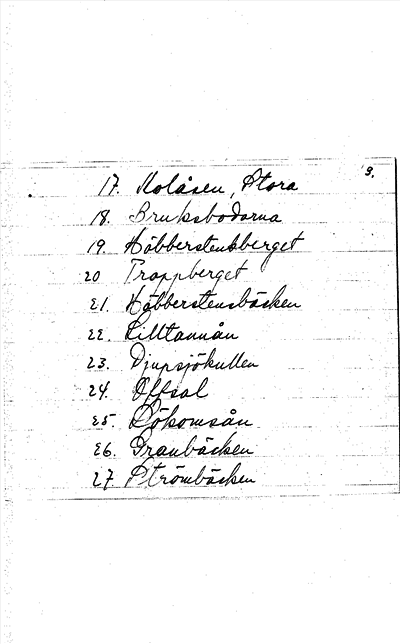 3.
17. Kolåsen, Stora
18. Bruksbodarna
19. Häbberstensberget
20 Troppberget
21. Häbberstensbäcken
22. Lilltannån
23. Djupsjökullen
24. Offsal
25. Lökomsån
26. Granbäcken
27 Strömbäcken